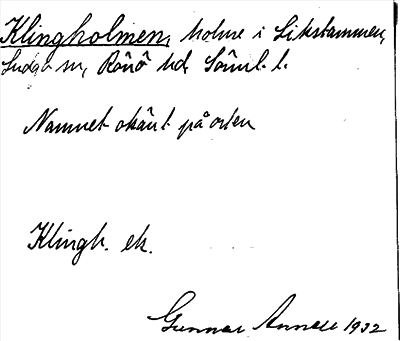 Klingholmen, holme i Likstammen,
Ludgo sn, Rönö hd, Söml. l.
Namnet okänt på orten
Klingh. ek.
Gunnar Annell 1932